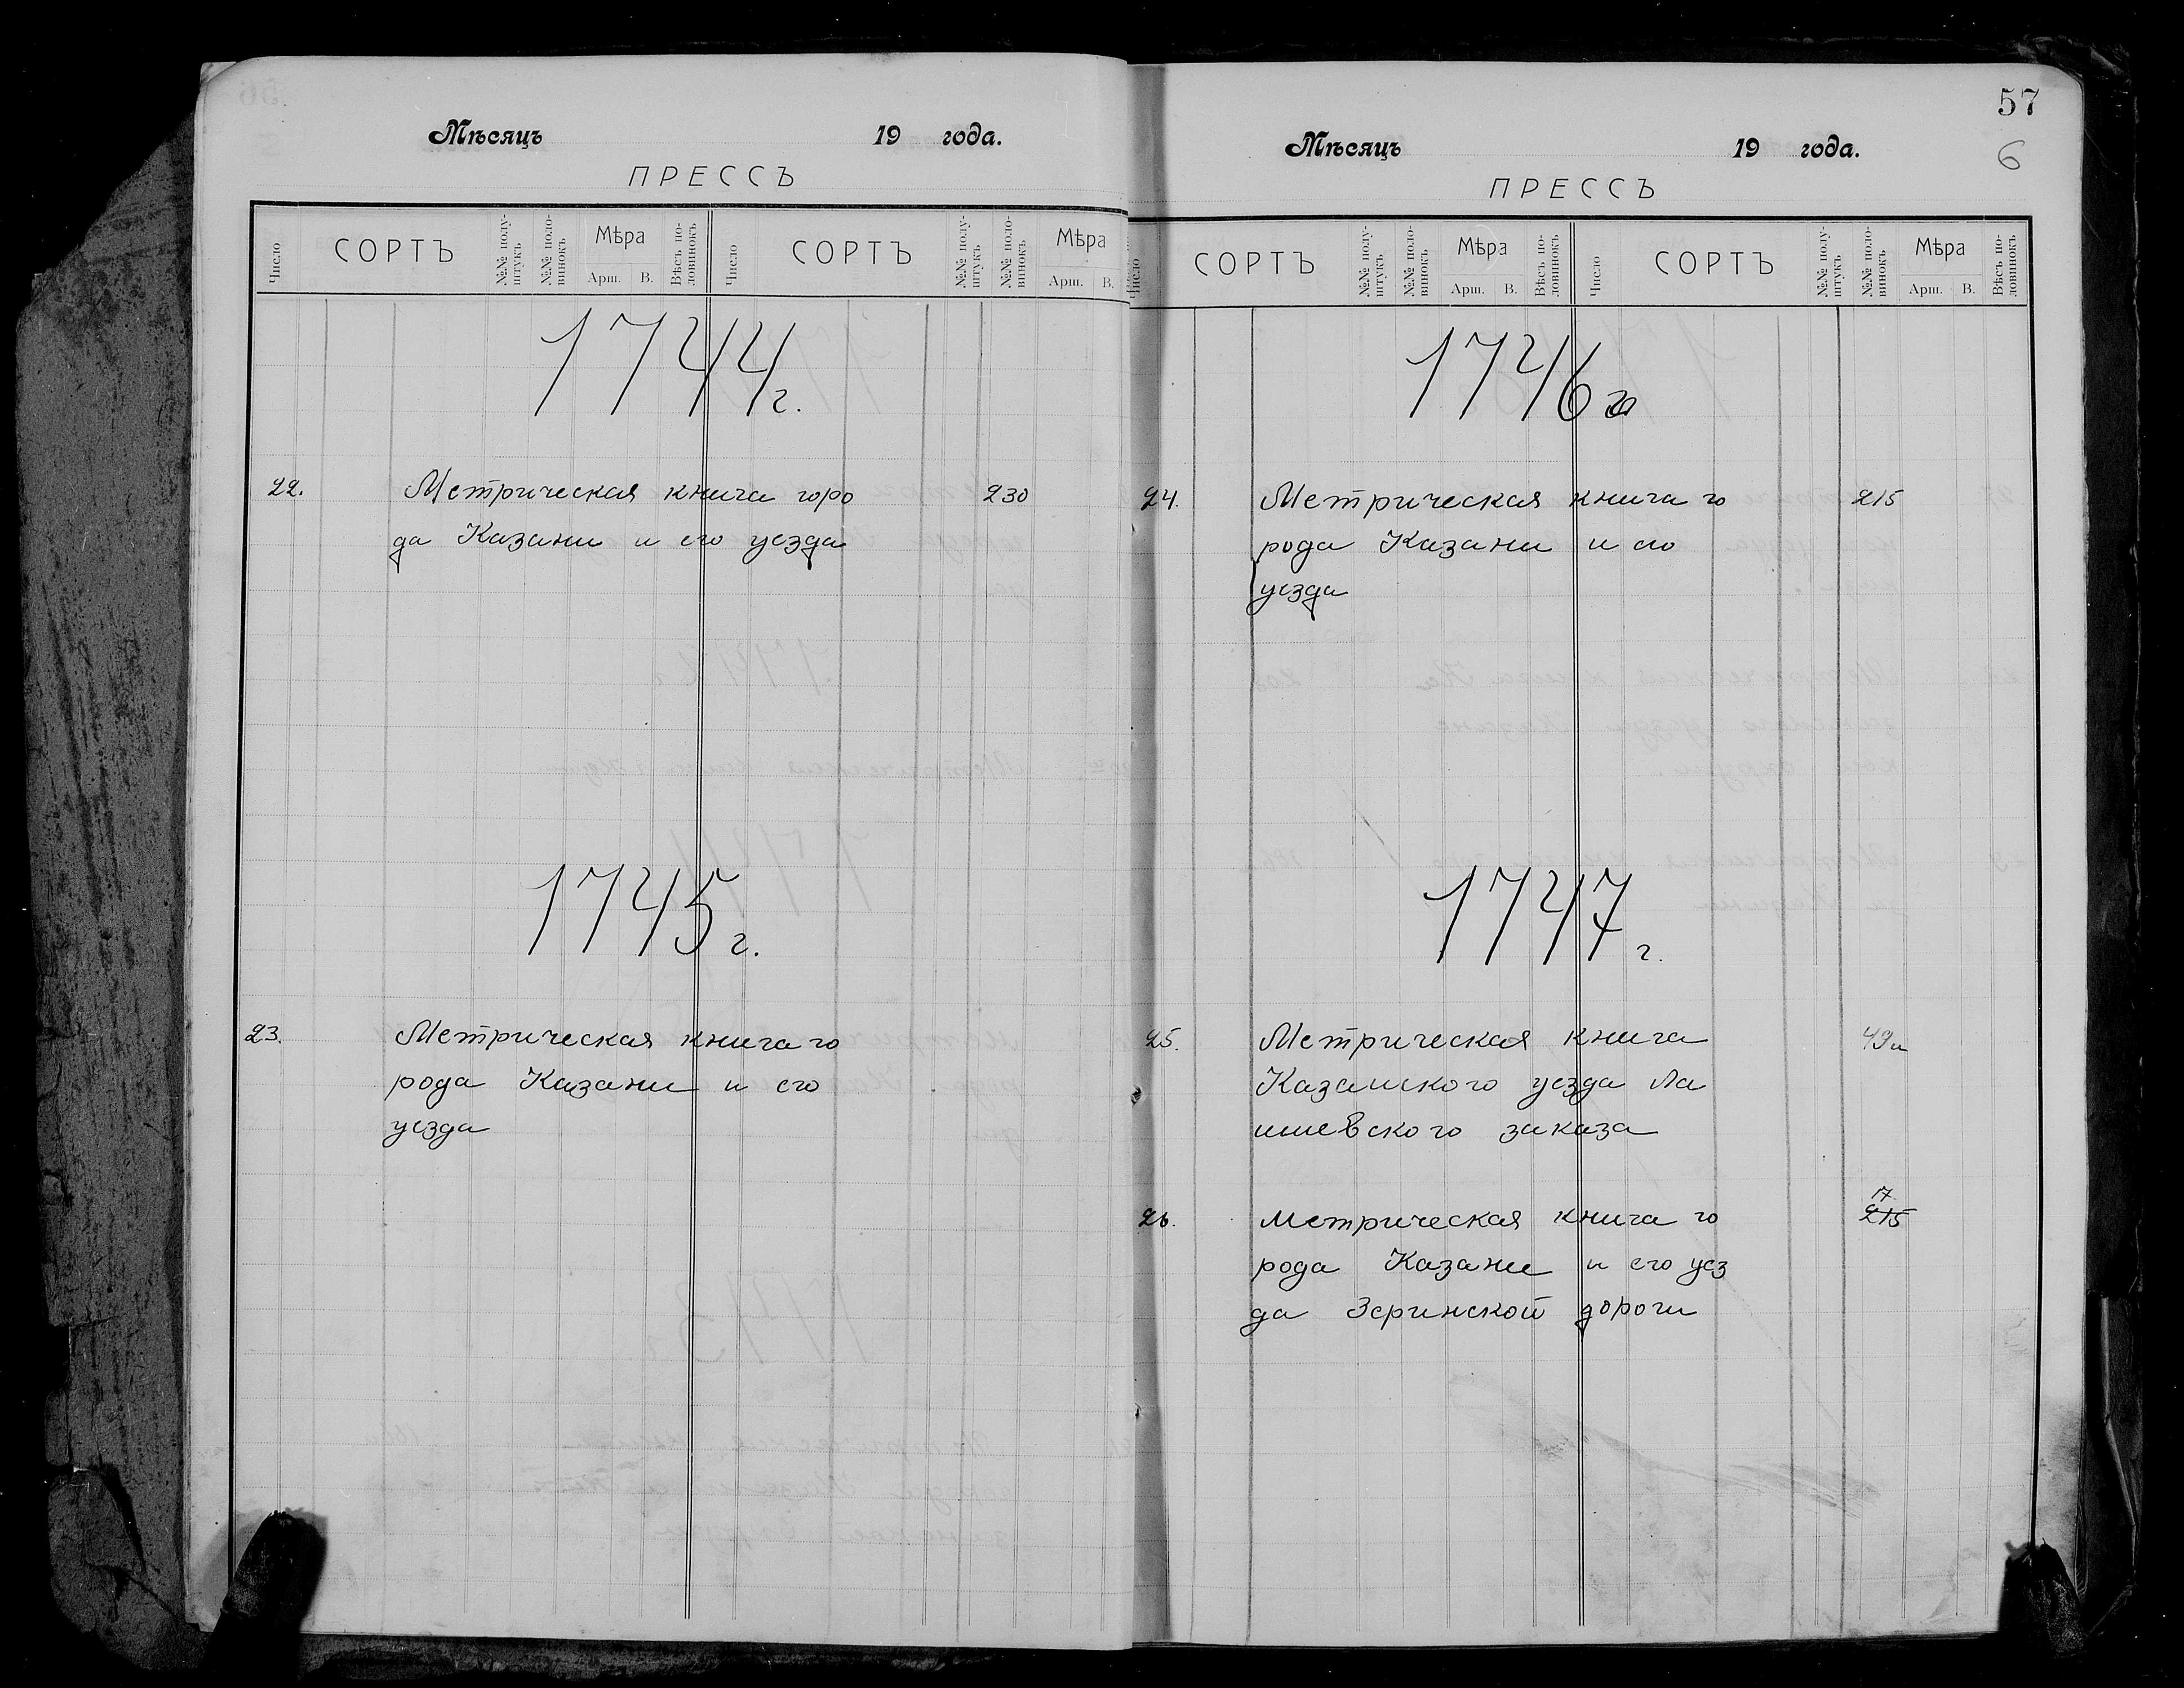 Мѣсяцъ 19 года.
ПРЕССЪ
Число СОРТЪ №№ полуштукъ №№ половинокъ Мѣра Арш. В. Вѣсъ половинокъ Число СОРТЪ №№ полуштукъ №№ половинокъ Мѣра Арш. В.
1744 г.
22. Метрическая книга горо 230
да Казани и его уезда
1745 г.
23. Метрическая книга го
рода Казани и его
уезда
57
6
Мѣсяцъ 19 года.
ПРЕССЪ
Число СОРТЪ №№ полуштукъ №№ половинокъ Мѣра Арш. В. Вѣсъ половинокъ Число СОРТЪ №№ полуштукъ №№ половинокъ Мѣра Арш. В. Вѣсъ половинокъ
1746 г
24. Метрическая книга го 215
рода Казани и его
уезда
1747 г.
25. Метрическая книга 49
Казанского уезда Ла
ишевского заказа
17
26. Метрическая книга го 215
рода Казани и его уез
да Зеринской дороги